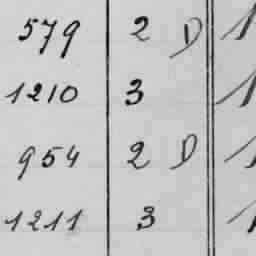 579 2 D 1
1210 3 1
954 2 D 1
1211 3 1